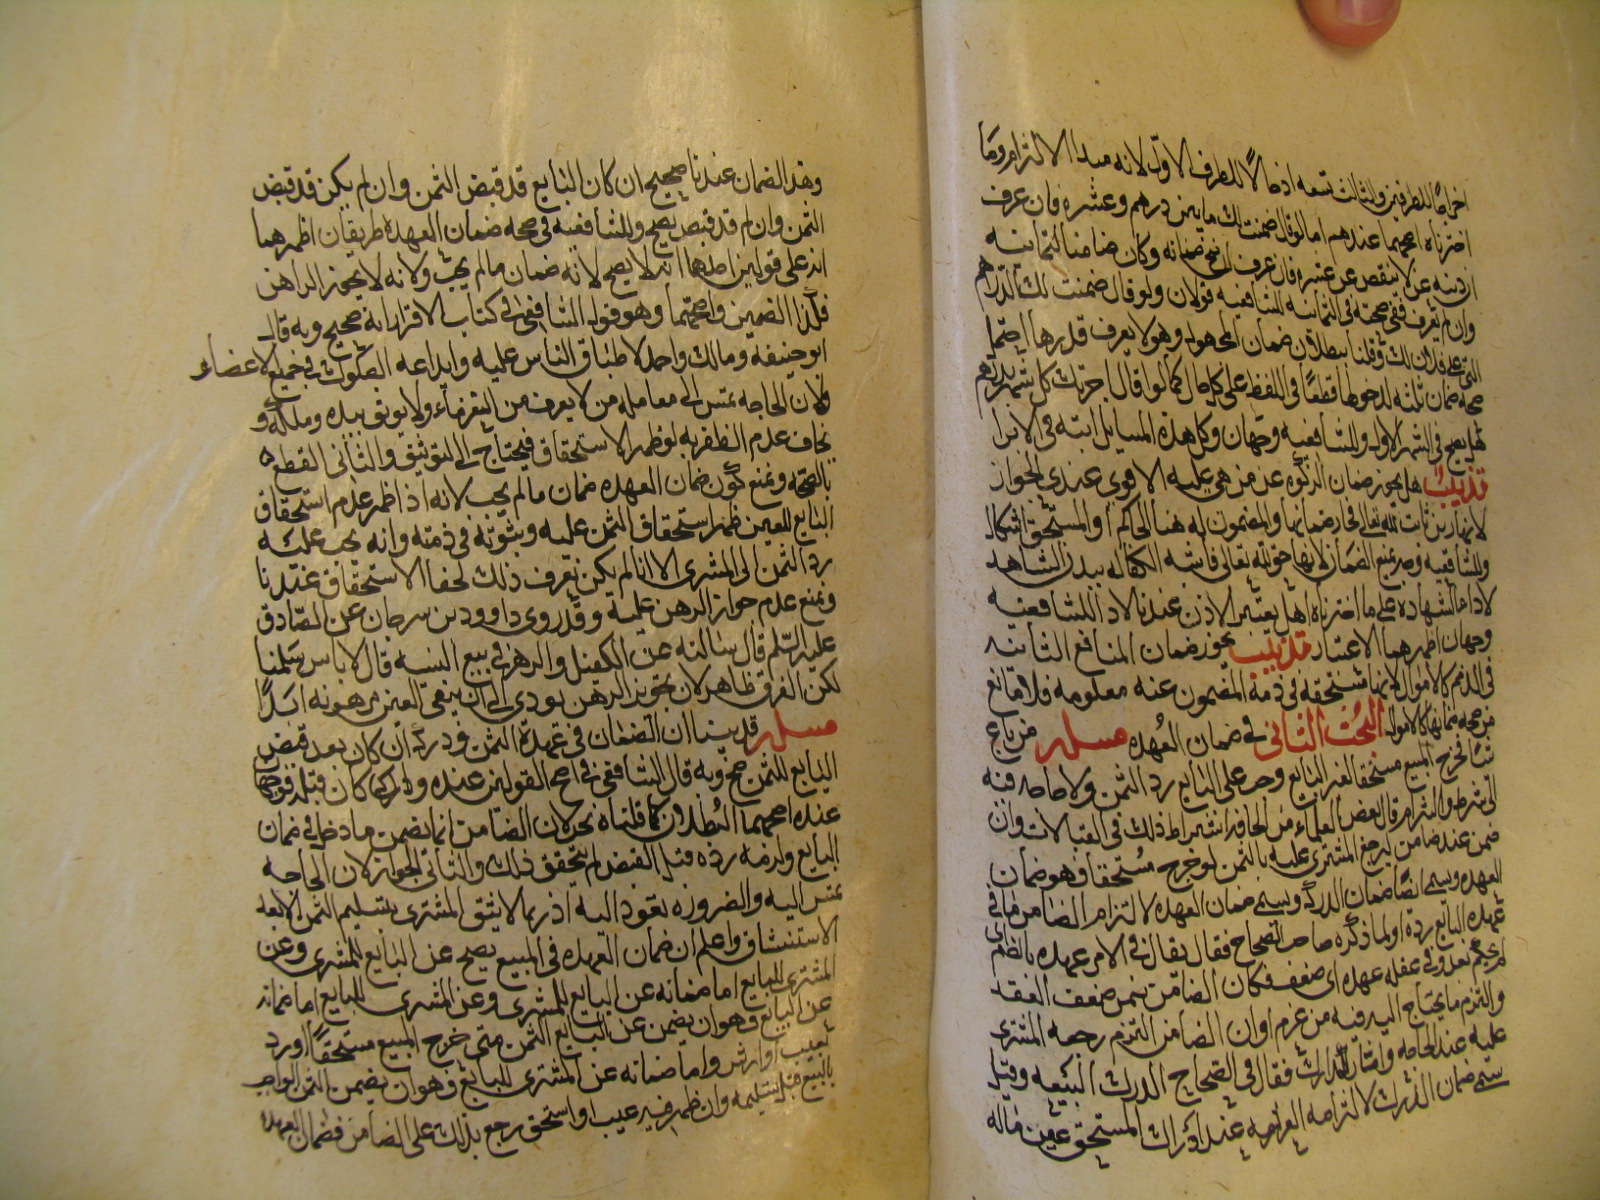 اخراجًا للطرفين والثالث تسعه ادخالاً للطرف الاول لانه مبدا الالتزام وما
اخترناه اصحهما عندهم اما لو قال ضمنت لك ما بين درهم وعشره فان عرف
ان دينه عن لا ينقص عن عشره فان عرف صح ضمانه وكان ضامنا لثمانيه
وان لم يعرف ففي صحته في الثمانيه للشافعيه قولان ولو قال ضمنت لك الدراهم
التي على فلان لك وقلنا ببطلان ضمان المجهول وهو لا يعرف قدرها احتمل
صحه ضمان ثلثه لدخولها قطعًا في اللفظ على كل حال كما لو قال اجرتك كل شهر بدرهم
هل يصح في الشهر الاول وللشافعيه وجهان وكل هذه المسايل اتيه في الابرا
تذنيب هل يجوز ضمان الزكوه عن من هي عليه الاقوى عندي الجواز
لانها دين ثابت لله تعالى فجاز ضمانها والمضمون له هنا الحاكم او المستحق اشكال
وللشافعيه وجه يمنع الضمان لانها حق لله تعالى فاشبه الكفاله ببدن الشاهد
لاداء الشهاده على ما اخترناه هل يعتبر الاذن عندنا لا وللشافعيه
وجهان اظهرهما الاعتبار تذنيب يجوز ضمان المنافع الثابته
في الذمم كالاموال لانها مستحقه في ذمة المضمون عنه معلومه فلا مانع
من صحه ضمانها كالاموال البحث الثاني في ضمان العهده مسله من باع
شيًا فخرج المبيع مستحقا لغير البايع وجب على البايع رد الثمن ولا حاجه فيه
الى شرط والتزام قال بعض العلماء من الحاقه اشتراط ذلك في القبالات وان
ضمن عنه ضامن ليرجع المشترى عليه بالثمن لو خرج مستحقا فهو ضمان
العهده ويسمى ايضًا ضمان الدرك وسمى ضمان العهده لالتزام الضامن ما في
عهده البايع رده او لما ذكره صاحب الصحاح فقال يقال في الامر عهده بالضم اى
لم يحكم بعد وفي عقله عهده اى ضعف فكان الضامن ضمن ضعف العقد
والتزم ما يحتاج اليه فيه من غرم او ان الضامن التزم رجعه المشتري
عليه عند الحاجه واما الدرك فقال في الصحاح الدرك التبعه وقيل
سمى ضمان الدرك لالتزامه الغرامه عند ادراك المستحق عين ماله
وهذا الضمان عندنا صحيح ان كان البايع قد قبض الثمن وان لم يكن قد قبض
الثمن وان لم قد قبض يصح وللشافعيه في صحه ضمان العهده طريقان اظهرهما
انه على قولين احدهما انه لا يصح لانه ضمان ما لم يجب ولانه لا يجوز الراهن
فكذا الضمين واصحهما وهو قول الشافعي في كتاب الاقرار انه صحيح وبه قال
ابو حنيفه ومالك واحمد لاطباق الناس عليه وايداعه الصكوك في جميع الاعضاء
ولان الحاجه تمس الى معامله من لا يعرف من الغرماء ولا يوثق بيده وملكه و
يخاف عدم الظفر به لو ظهر الاستحقاق فيحتاج الى التوثيق والثاني القطع
بالصحه ونمنع كون ضمان العهده ضمان ما لم يجب لانه اذا ظهر عدم استحقاق
البايع للعين ظهر استحقاق الثمن عليه وثبوته في ذمته وانه يجب عليه
رد الثمن الى المشترى الا انا لم يكن نعرف ذلك لخفا الاستحقاق عندنا
ونمنع عدم جواز الرهن عليه وقد روى داوود بن سرحان عن الصادق
عليه السلم قال سالته عن الكفيل والرهن في بيع النسيه قال لا باس سلمنا
لكن الفرق ظاهر لان تجويز الرهن يودى الى ان يبقى العين مرهونه ابدًا
مسله قد بينا ان الضمان في عهدة الثمن ودركه ان كان بعد قبض
البايع للثمن صح وبه قال الشافعي في اصح القولين عنده وان كان قبله فوجهان
عنده اصحهما البطلان كما قلناه نحن لان الضامن انما يضمن ما دخل في ضمان
البايع ولزمه رده وقبل القبض لم يتحقق ذلك والثاني الجواز لان الحاجه
تمس اليه والضروره تقود اليه اذ ربما لا يثق المشترى بتسليم الثمن الا بعد
الاستيثاق واعلم ان ضمان العهده في المبيع يصح عن البايع للمشرى وعن
المشترى للبايع اما ضمانه عن البايع للمشرى وعن المشرى للبايع اما ضمانه
عن البايع فهو ان يضمن عن البايع الثمن متى خرج المبيع مستحقًا او رد
بعيب او ارش واما ضمانه عن المشترى للبايع فهو ان يضمن الثمن الواجب
بالبيع قبل تسليمه وان ظهر فيه عيب او استحق رجع بذلك على الضامن فضمان العهده